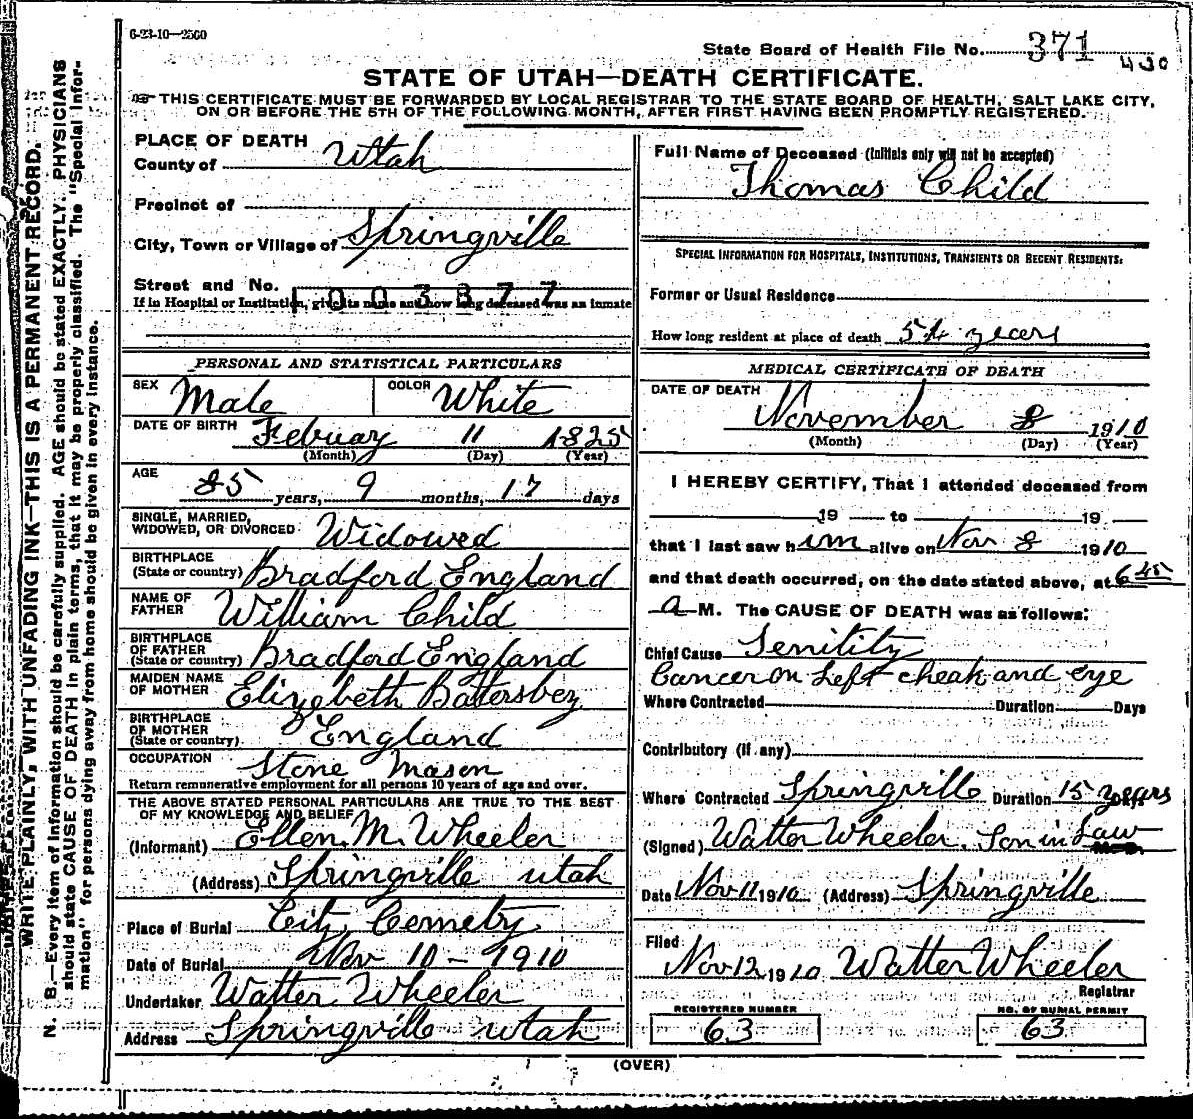 6-23-10—2500
State Board of Health File No. 371
430
STATE OF UTAH—DEATH CERTIFICATE.
THIS CERTIFICATE MUST BE FORWARDED BY LOCAL REGISTRAR TO THE STATE BOARD OF HEALTH, SALT LAKE CITY,
ON OR BEFORE THE 5TH OF THE FOLLOWING MONTH, AFTER FIRST HAVING BEEN PROMPTLY REGISTERED.
WRITE PLAINLY, WITH UNFADING INK—THIS IS A PERMANENT RECORD.
N. B.—Every item of information should be carefully supplied. AGE should be stated EXACTLY. PHYSICIANS
should state CAUSE OF DEATH in plain terms, that it may be properly classified. The "Special Infor-
mation" for persons dying away from home should be given in every instance.
PLACE OF DEATH
County of Utah
Precinct of
City, Town or Village of Springville
Street and No.
1003377
If in Hospital or Institution, give its name and how long deceased was an inmate
PERSONAL AND STATISTICAL PARTICULARS
SEX Male COLOR White
DATE OF BIRTH Febuary 11 1825
(Month) (Day) (Year)
AGE 85 years, 9 months, 17 days
SINGLE, MARRIED,
WIDOWED, OR DIVORCED Widowed
BIRTHPLACE
(State or country) Bradford England
NAME OF
FATHER William Child
BIRTHPLACE
OF FATHER
(State or country) Bradford England
MAIDEN NAME
OF MOTHER Elizebeth Battersbey
BIRTHPLACE
OF MOTHER
(State or country) England
OCCUPATION Stone Mason
Return remunerative employment for all persons 10 years of age and over.
THE ABOVE STATED PERSONAL PARTICULARS ARE TRUE TO THE BEST
OF MY KNOWLEDGE AND BELIEF
(Informant) Ellen. M. Wheeler
(Address) Springville utah
Place of Burial City Cemetry
Date of Burial Nov 10 - 1910
Undertaker Walter Wheeler
Address Springville utah
Full Name of Deceased (Initials only will not be accepted)
Thomas Child
SPECIAL INFORMATION FOR HOSPITALS, INSTITUTIONS, TRANSIENTS OR RECENT RESIDENTS:
Former or Usual Residence
How long resident at place of death 54 years
MEDICAL CERTIFICATE OF DEATH
DATE OF DEATH
November 8 1910
(Month) (Day) (Year)
I HEREBY CERTIFY, That I attended deceased from
19 to 19
that I last saw him alive on Nov 8 1910
and that death occurred, on the date stated above, at 6 45
a M. The CAUSE OF DEATH was as follows:
Chief Cause Senitity
Cancer on Left cheak and eye
Where Contracted Duration Days
Contributory (if any)
Where Contracted Springville Duration 15 years
(Signed) Walter Wheeler. Son in Law
Date Nov 11 1910 (Address) Springville
Filed
Nov 12 1910 Walter Wheeler
Registrar
REGISTERED NUMBER NO. OF BURIAL PERMIT
63 63
(OVER)